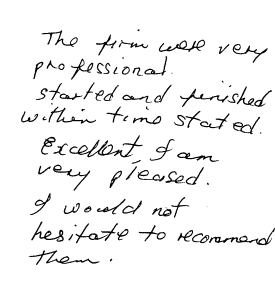 The firm were very
professional.
started and finished
within time stated.
Excellent, I am
very pleased.
I would not
hesitate to recommend
them.